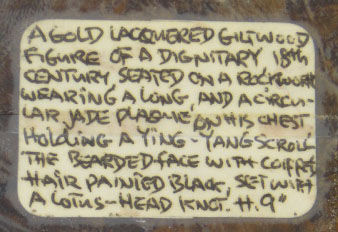 A GOLD LACQUERED GILTWOOD
FIGURE OF A DIGNITARY 18th
CENTURY SEATED ON A ROCKWORK
WEARING A LONG, AND A CIRCU-
LAR JADE PLAQUE ON HIS CHEST
HOLDING A YING-YANG SCROLL
THE BEARDED FACE WITH COIFFED
HAIR PAINTED BLACK, SET WITH
A LOTUS-HEAD KNOT. H. 9"